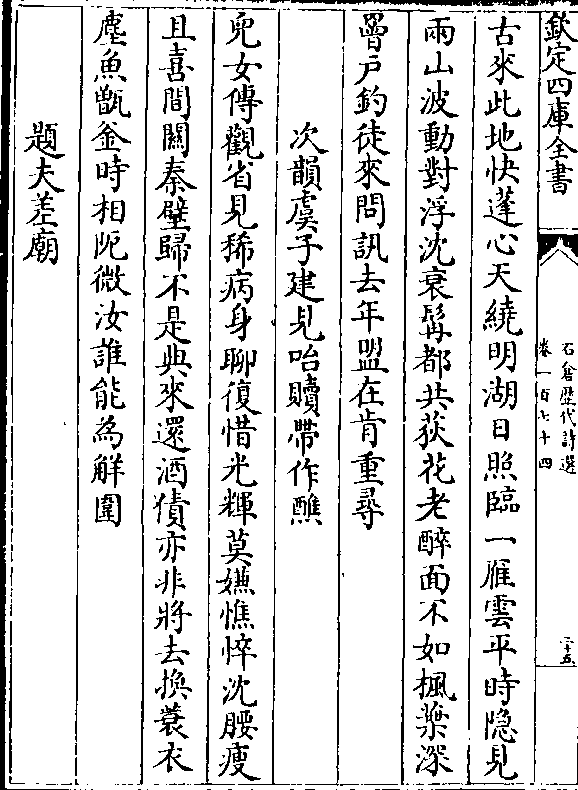 欽定四庫全書
石倉歷代詩選
卷一百七十四
二十五
古來此地快蓬心天繞明湖日照臨一雁雲平時隐見
兩山波動對浮沈衰髯都共荻花老醉面不如楓葉深
罾户釣徒來問訊去年盟在肯重尋
次韻虞子建見咍贖帶作醮
兒女傳觀省見稀病身聊復惜光輝莫嫌憔悴沈腰瘦
且喜間關秦璧歸不是典來還酒債亦非將去換蓑衣
塵魚甑釡時相阨微汝誰能為解圍
題夫差廟